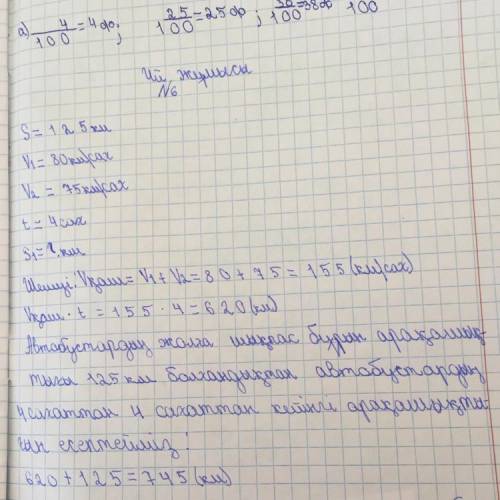 а) 4/100 = 4 %; 25/100 = 25 %; 38/100 = 38 % 100
Үй жұмысы
№6
S = 125 км
V1 = 80 км/сағ
V2 = 75 км/сағ
t = 4 сағ
S1 = ? км
Шешуі: Vқаш = V1 + V2 = 80 + 75 = 155 (км/сағ)
Vқаш · t = 155 · 4 = 620 (км)
Автобустардың жолға шықпас бұрын арақашық
тығы 125 км болғандықтан автобустардың
4 сағаттан 4 сағаттан кейінгі арақашықты
ғын есептейміз:
620 + 125 = 745 (км)